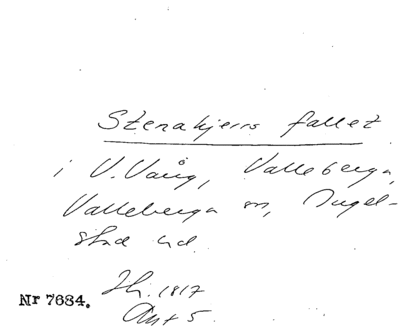 Stenakjerrs fallet
i V. Vång, Valleberga,
Valleberga sn, Ingel-
stad hd.
Nr 7684.
1817
Ant 5